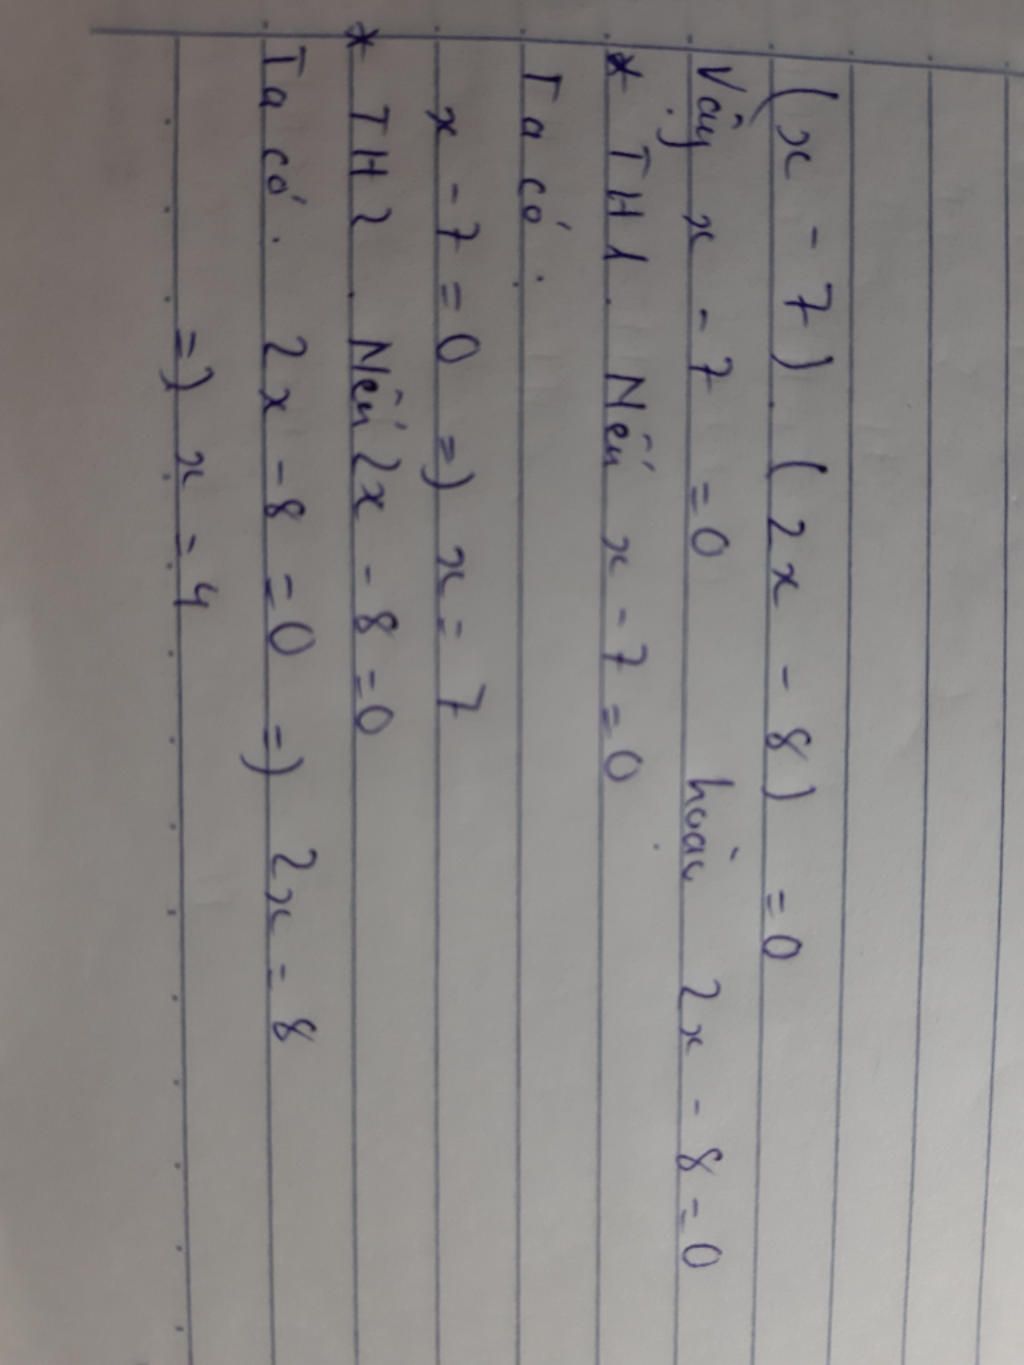 (x - 7) . (2x - 8) = 0
Vậy x - 7 = 0 hoặc 2x - 8 = 0
* TH1. Nếu x - 7 = 0
Ta có :
x - 7 = 0 => x = 7
* TH2. Nếu 2x - 8 = 0
Ta có : 2x - 8 = 0 => 2x = 8
=> x = 4